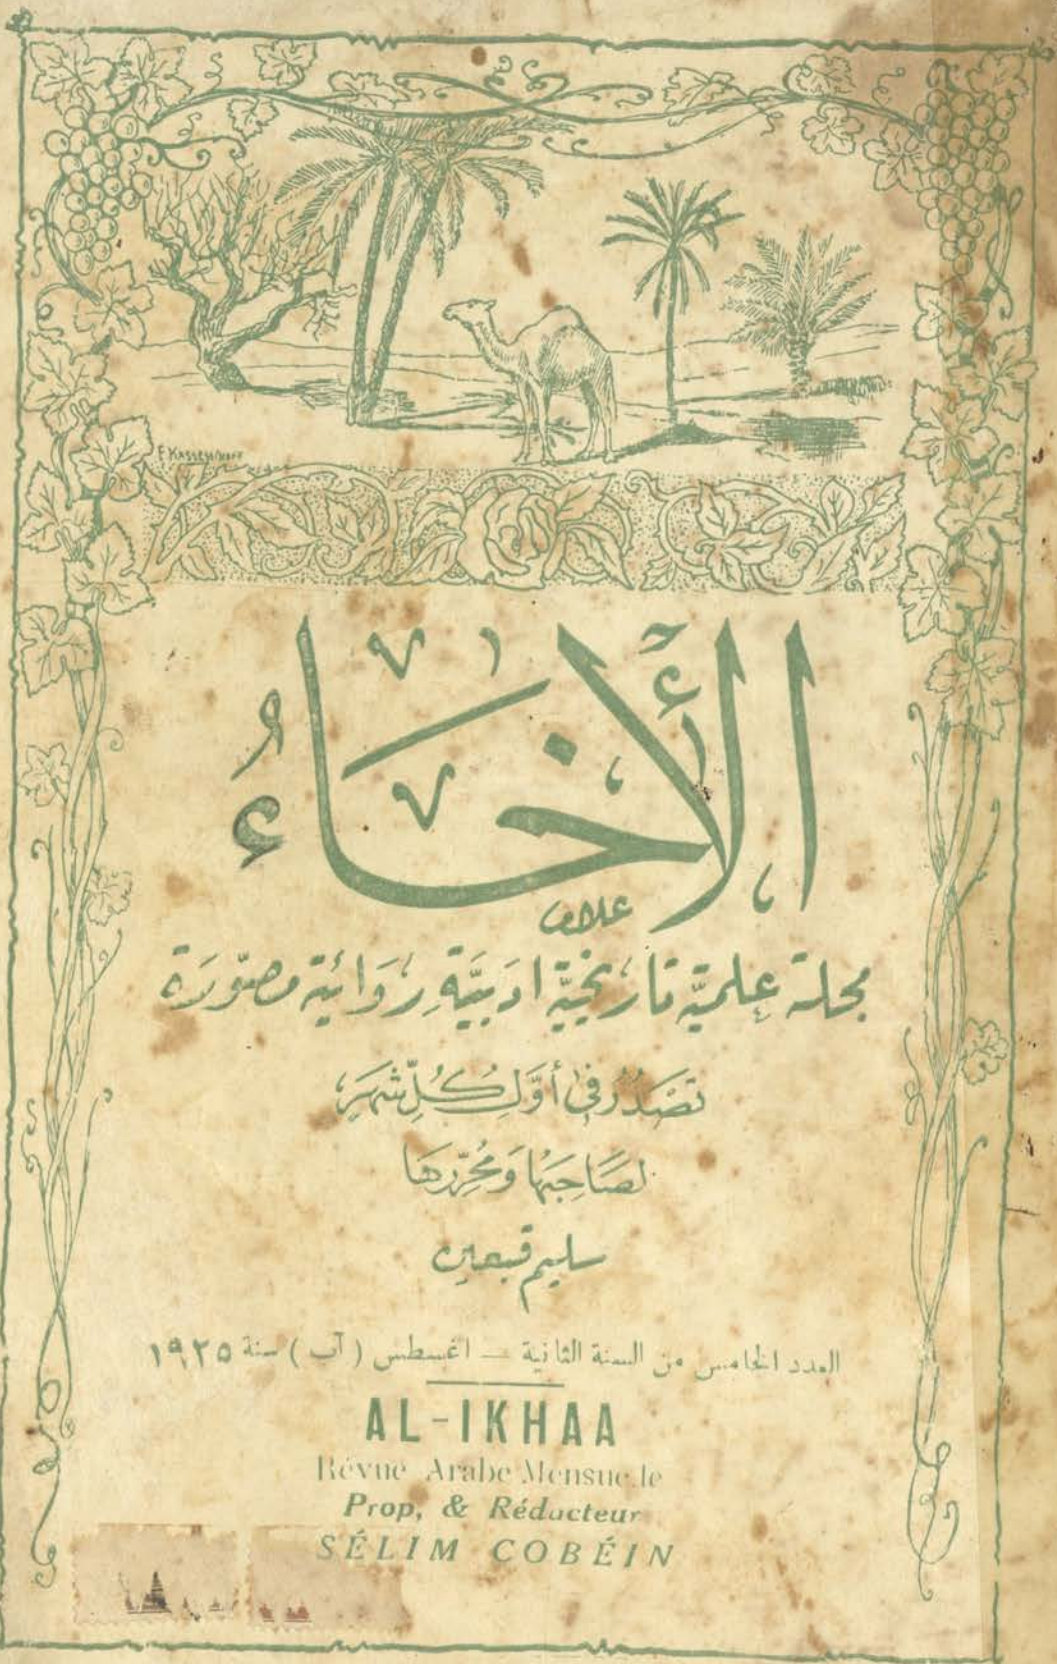 الأخاءُ
مجلة علميّة تاريخيّة ادَبيَّة رِوَائية مصوّرَة
تصْدُر في أوَّل كُلِّ شهر
لصَاحِبهَا وَمُحَرّرهَا
سليم قبعين
العدد الخامس من السنة الثانية — اغسطس ( آب ) سنة ١٩٢٥
AL-IKHAA
Révue Arabe Mensuelle
Prop, & Rédacteur
SÉLIM COBÉIN